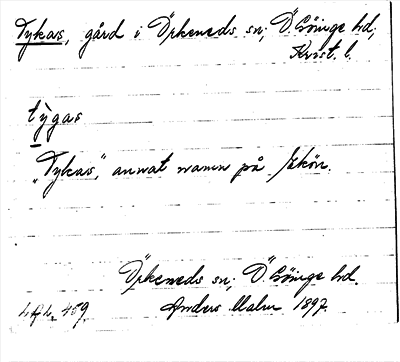 Tykas, gård i Örkeneds sn; Ö. Göinge hd,
Krist. l.
tỳgas
„Tykas," annat namn på Ekön.
Örkeneds sn; Ö. Göinge hd.
Anders Malm 1897.